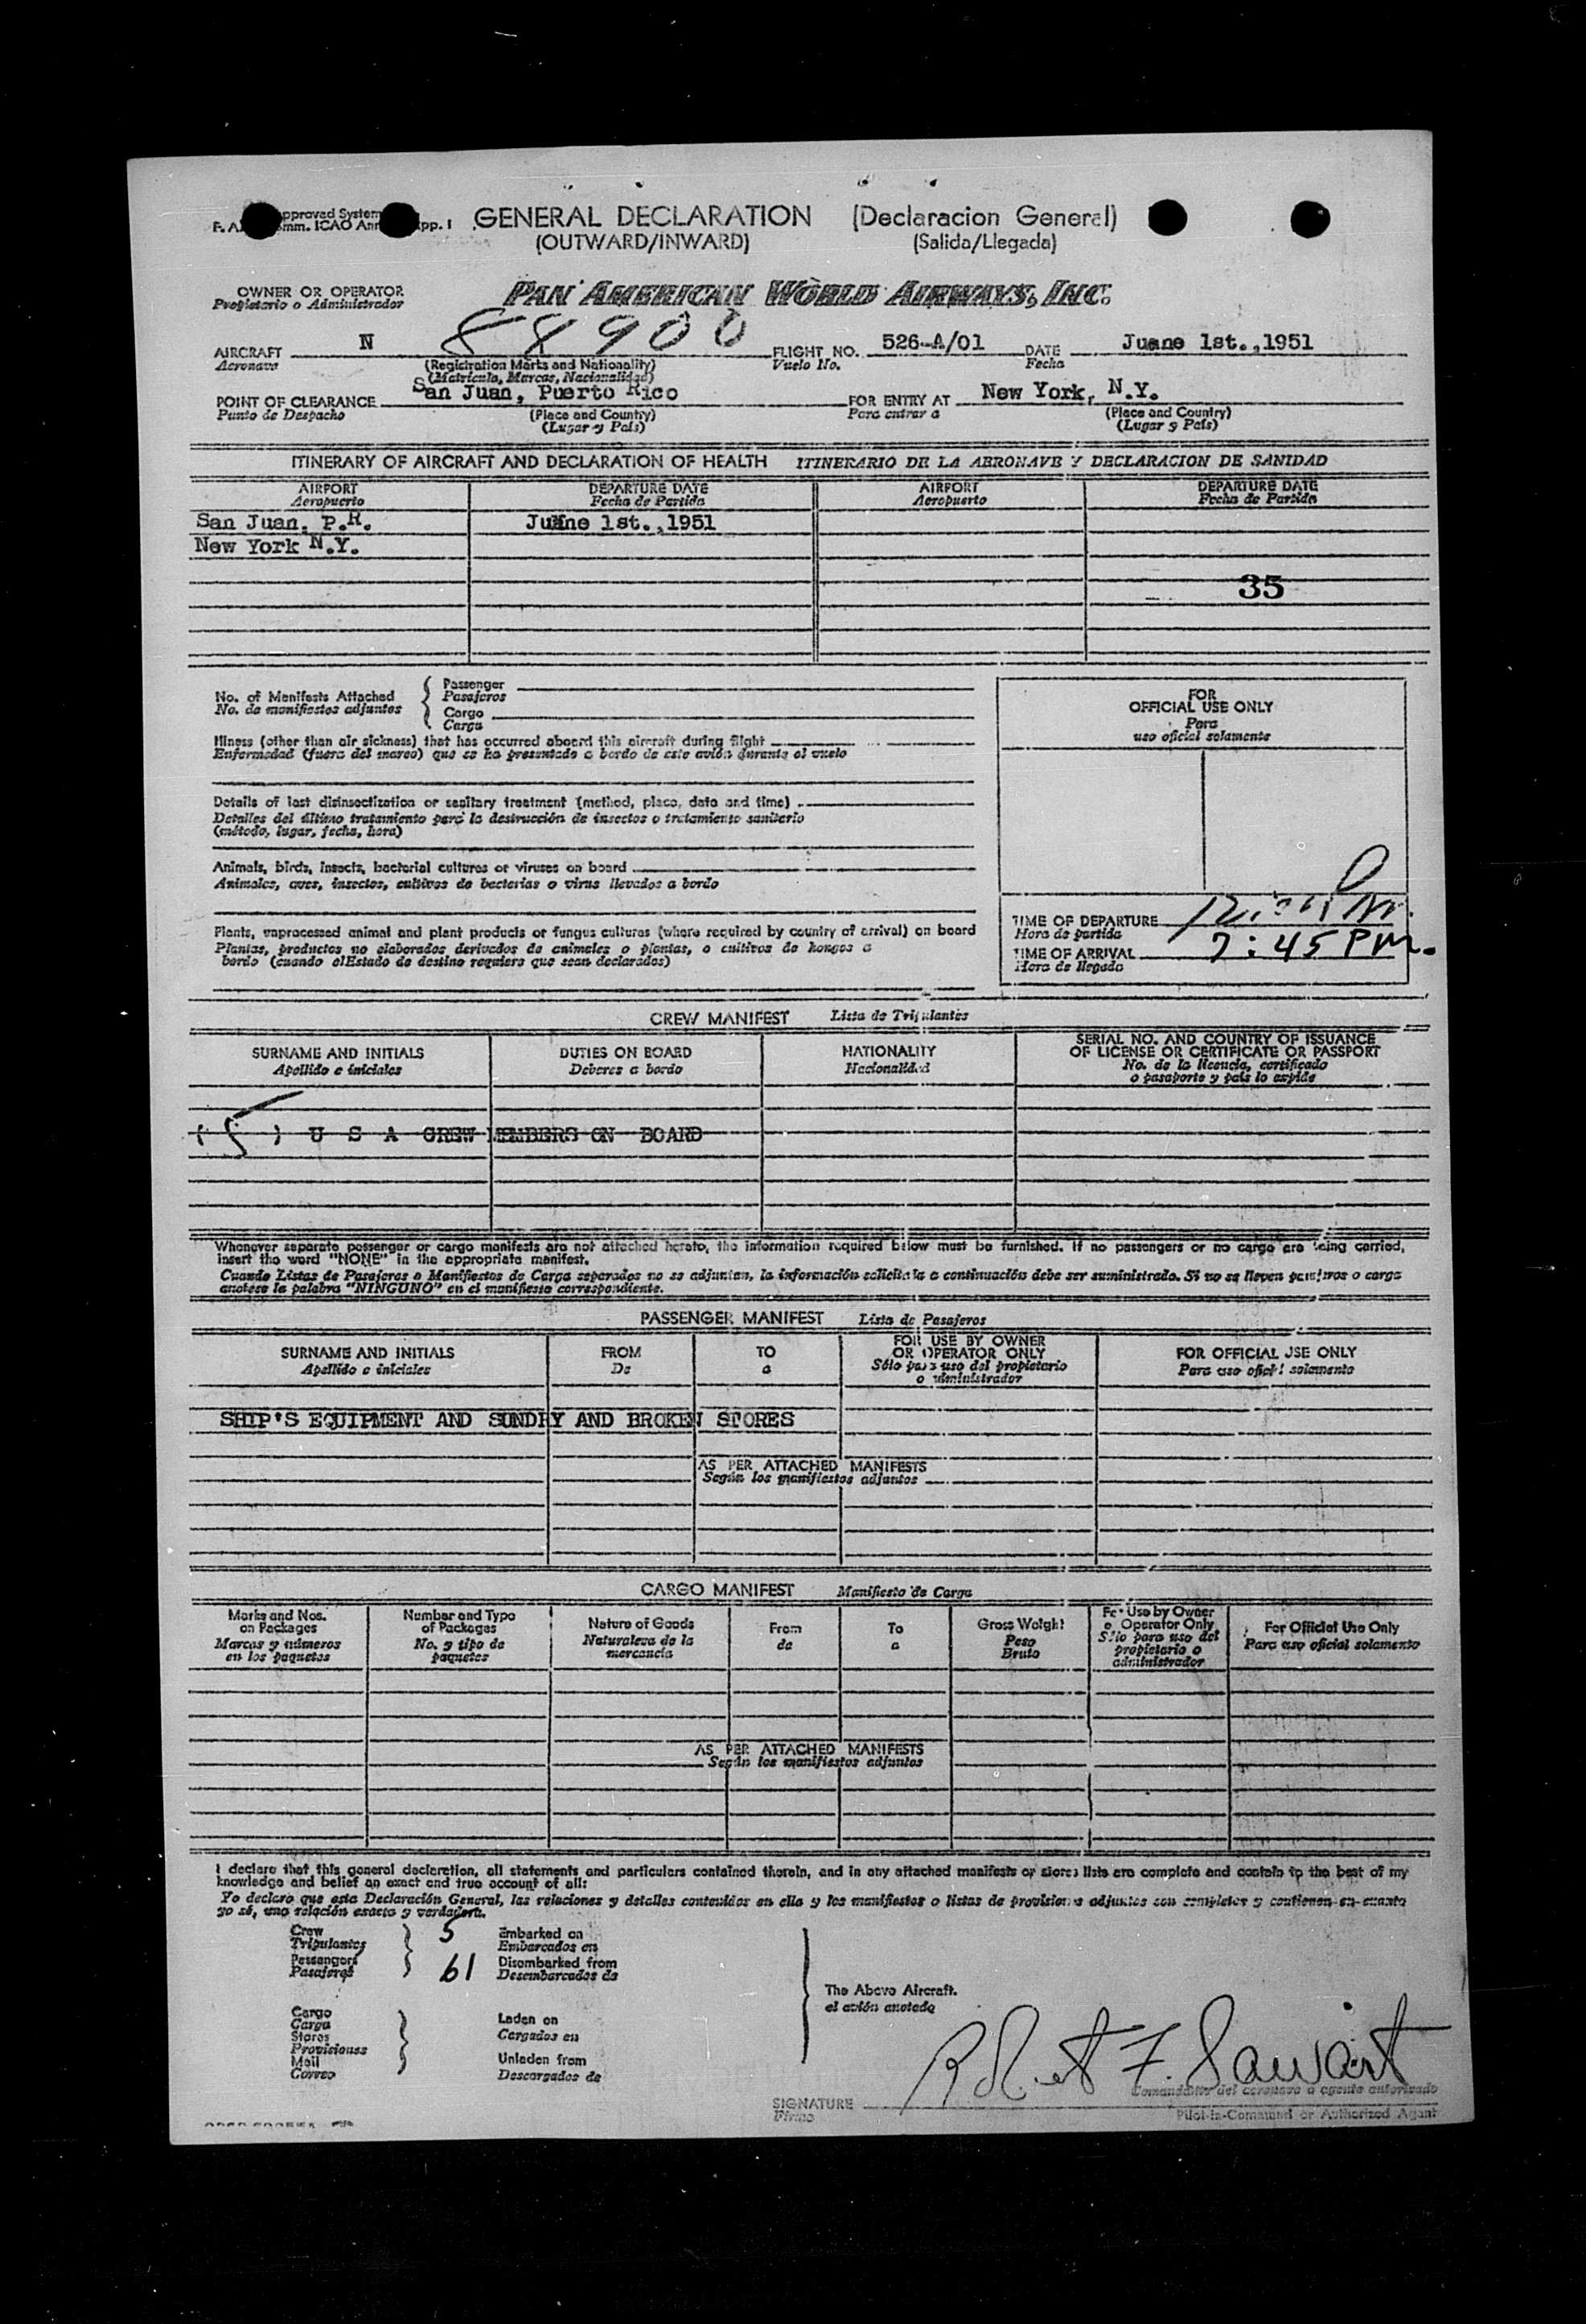 pproved System
F. A. mm. ICAO Ann pp. I
GENERAL DECLARATION (Declaracion General)
(OUTWARD/INWARD) (Salida/Llegada)
OWNER OR OPERATOR
Propietario o Administrador
PAN AMERICAN WORLD AIRWAYS, INC.
AIRCRAFT N 88900 FLIGHT NO. 526-A/01 DATE Juane 1st.,1951
Aeronave (Registration Marks and Nationality) Vuelo No. Fecha
(Matricula, Marcas, Nacionalidad)
POINT OF CLEARANCE San Juan, Puerto Rico FOR ENTRY AT New York, N.Y.
Punto de Despacho (Place and Country) Para entrar a (Place and Country)
(Lugar y País) (Lugar y País)
ITINERARY OF AIRCRAFT AND DECLARATION OF HEALTH ITINERARIO DE LA AERONAVE Y DECLARACION DE SANIDAD
AIRPORT DEPARTURE DATE AIRPORT DEPARTURE DATE
Aeropuerto Fecha de Partida Aeropuerto Fecha de Partida
San Juan, P.R. June 1st.,1951
New York N.Y.
35
No. of Manifests Attached
No. de manifiestos adjuntos
Passenger
Pasajeros
Cargo
Carga
Illness (other than air sickness) that has occurred aboard this aircraft during flight
Enfermedad (fuera del mareo) que se ha presentado a bordo de este avión durante el vuelo
Details of last disinsectization or sanitary treatment (method, place, date and time)
Detalles del último tratamiento para la destrucción de insectos o tratamiento sanitario
(método, lugar, fecha, hora)
Animals, birds, insects, bacterial cultures or viruses on board
Animales, aves, insectos, cultivos de bacterias o virus llevados a bordo
Plants, unprocessed animal and plant products or fungus cultures (where required by country of arrival) on board
Plantas, productos no elaborados derivados de animales o plantas, o cultivos de hongos a
bordo (cuando elEstado de destino requiera que sean declarados)
FOR
OFFICIAL USE ONLY
Para
uso oficial solamente
TIME OF DEPARTURE
Hora de partida
TIME OF ARRIVAL 7:45 PM.
Hora de llegada
CREW MANIFEST Lista de Tripulantes
SURNAME AND INITIALS DUTIES ON BOARD NATIONALITY SERIAL NO. AND COUNTRY OF ISSUANCE
OF LICENSE OR CERTIFICATE OR PASSPORT
Apellido e iniciales Deberes a bordo Nacionalidad No. de la licencia, certificado
o pasaporte y país lo expide
( 5 ) U S A CREW MEMBERS ON BOARD
Whenever separate passenger or cargo manifests are not attached hereto, the information required below must be furnished. If no passengers or no cargo are being carried,
insert the word "NONE" in the appropriate manifest.
Cuando Listas de Pasajeros o Manifiestos de Carga separados no se adjuntan, la información solicitada a continuación debe ser suministrada. Si no se lleven pasajeros o carga
anotese la palabra "NINGUNO" en el manifiesto correspondiente.
PASSENGER MANIFEST Lista de Pasajeros
SURNAME AND INITIALS FROM TO FOR USE BY OWNER
OR OPERATOR ONLY FOR OFFICIAL USE ONLY
Apellido e iniciales De a Sólo para uso del propietario
o administrador Para uso oficial solamente
SHIP'S EQUIPMENT AND SUNDRY AND BROKEN STORES
AS PER ATTACHED MANIFESTS
Según los manifiestos adjuntos
CARGO MANIFEST Manifiesto de Carga
Marks and Nos.
on Packages
Marcas y números
en los paquetes
Number and Type
of Packages
No. y tipo de
paquetes
Nature of Goods
Naturaleza de la
mercancía
From
de
To
a
Gross Weight
Peso
Bruto
For Use by Owner
o Operator Only
Sólo para uso del
propietario o
administrador
For Official Use Only
Para uso oficial solamente
AS PER ATTACHED MANIFESTS
Según los manifiestos adjuntos
I declare that this general declaration, all statements and particulars contained therein, and in any attached manifests or stores lists are complete and contain to the best of my
knowledge and belief an exact and true account of all:
Yo declaro que esta Declaración General, las relaciones y detalles contenidos en ella y los manifiestos o listas de provisiones adjuntos son completos y contienen en cuanto
yo sé, una relación exacta y verdadera.
Crew 5 Embarked on
Tripulantes Embarcados en
Passengers 61 Disembarked from
Pasajeros Desembarcados de
The Above Aircraft.
el avión anotado
Cargo
Carga Laden on
Stores Cargados en
Provisiones
Mail Unladen from
Correo Descargados de
Robert F. Sawart
SIGNATURE
Firma
Comandante del aeronave o agente autorizado
Pilot-in-Command or Authorized Agent